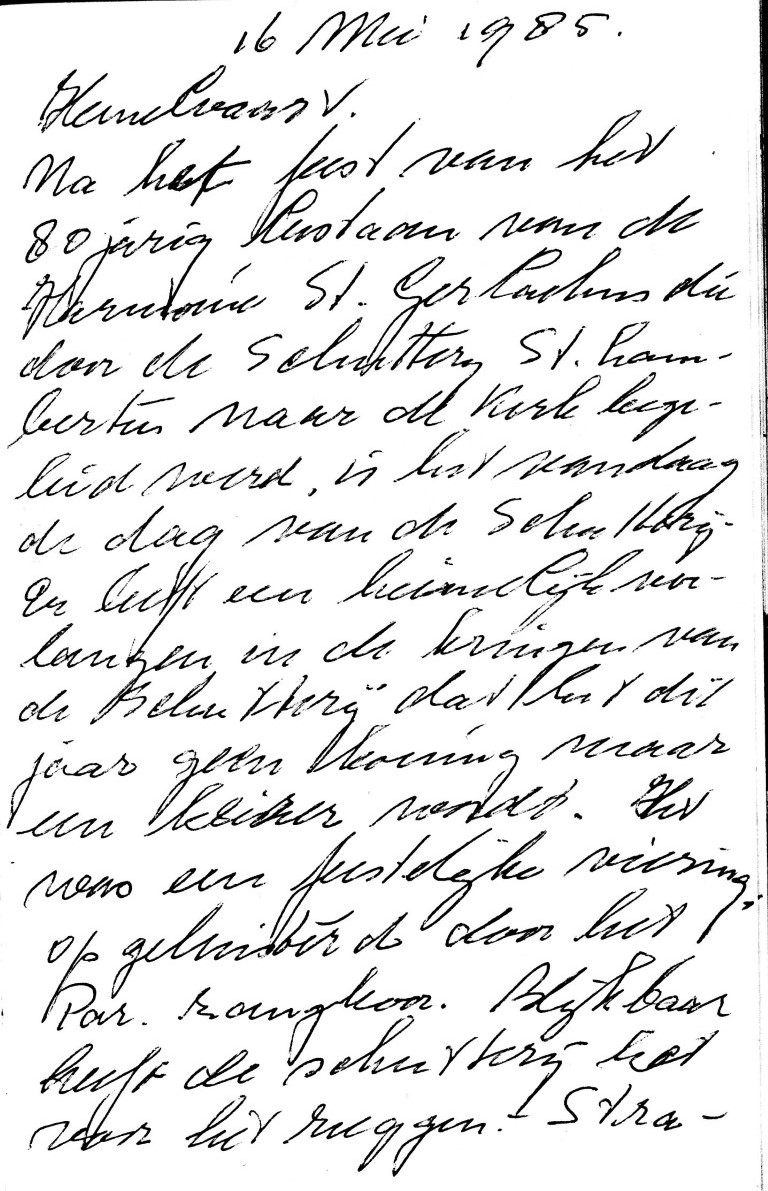 16 Mei 1985.
Hemelvaart.
Na het feest van het
80 jarig bestaan van de
Harmonie St. Gerlachus die
door de Schutterij St. Lam-
bertus naar de Kerk bege-
leid werd, is het vandaag
de dag van de Schutterij.
Er leeft een heimelijk ver-
langen in de kringen van
de Schutterij dat het dit
jaar geen koning maar
een keizer wordt. Het
was een feestelijke viering,
opgeluisterd door het
Par. zangkoor. Blijkbaar
heeft de schutterij het
voor het zeggen. - Stra-